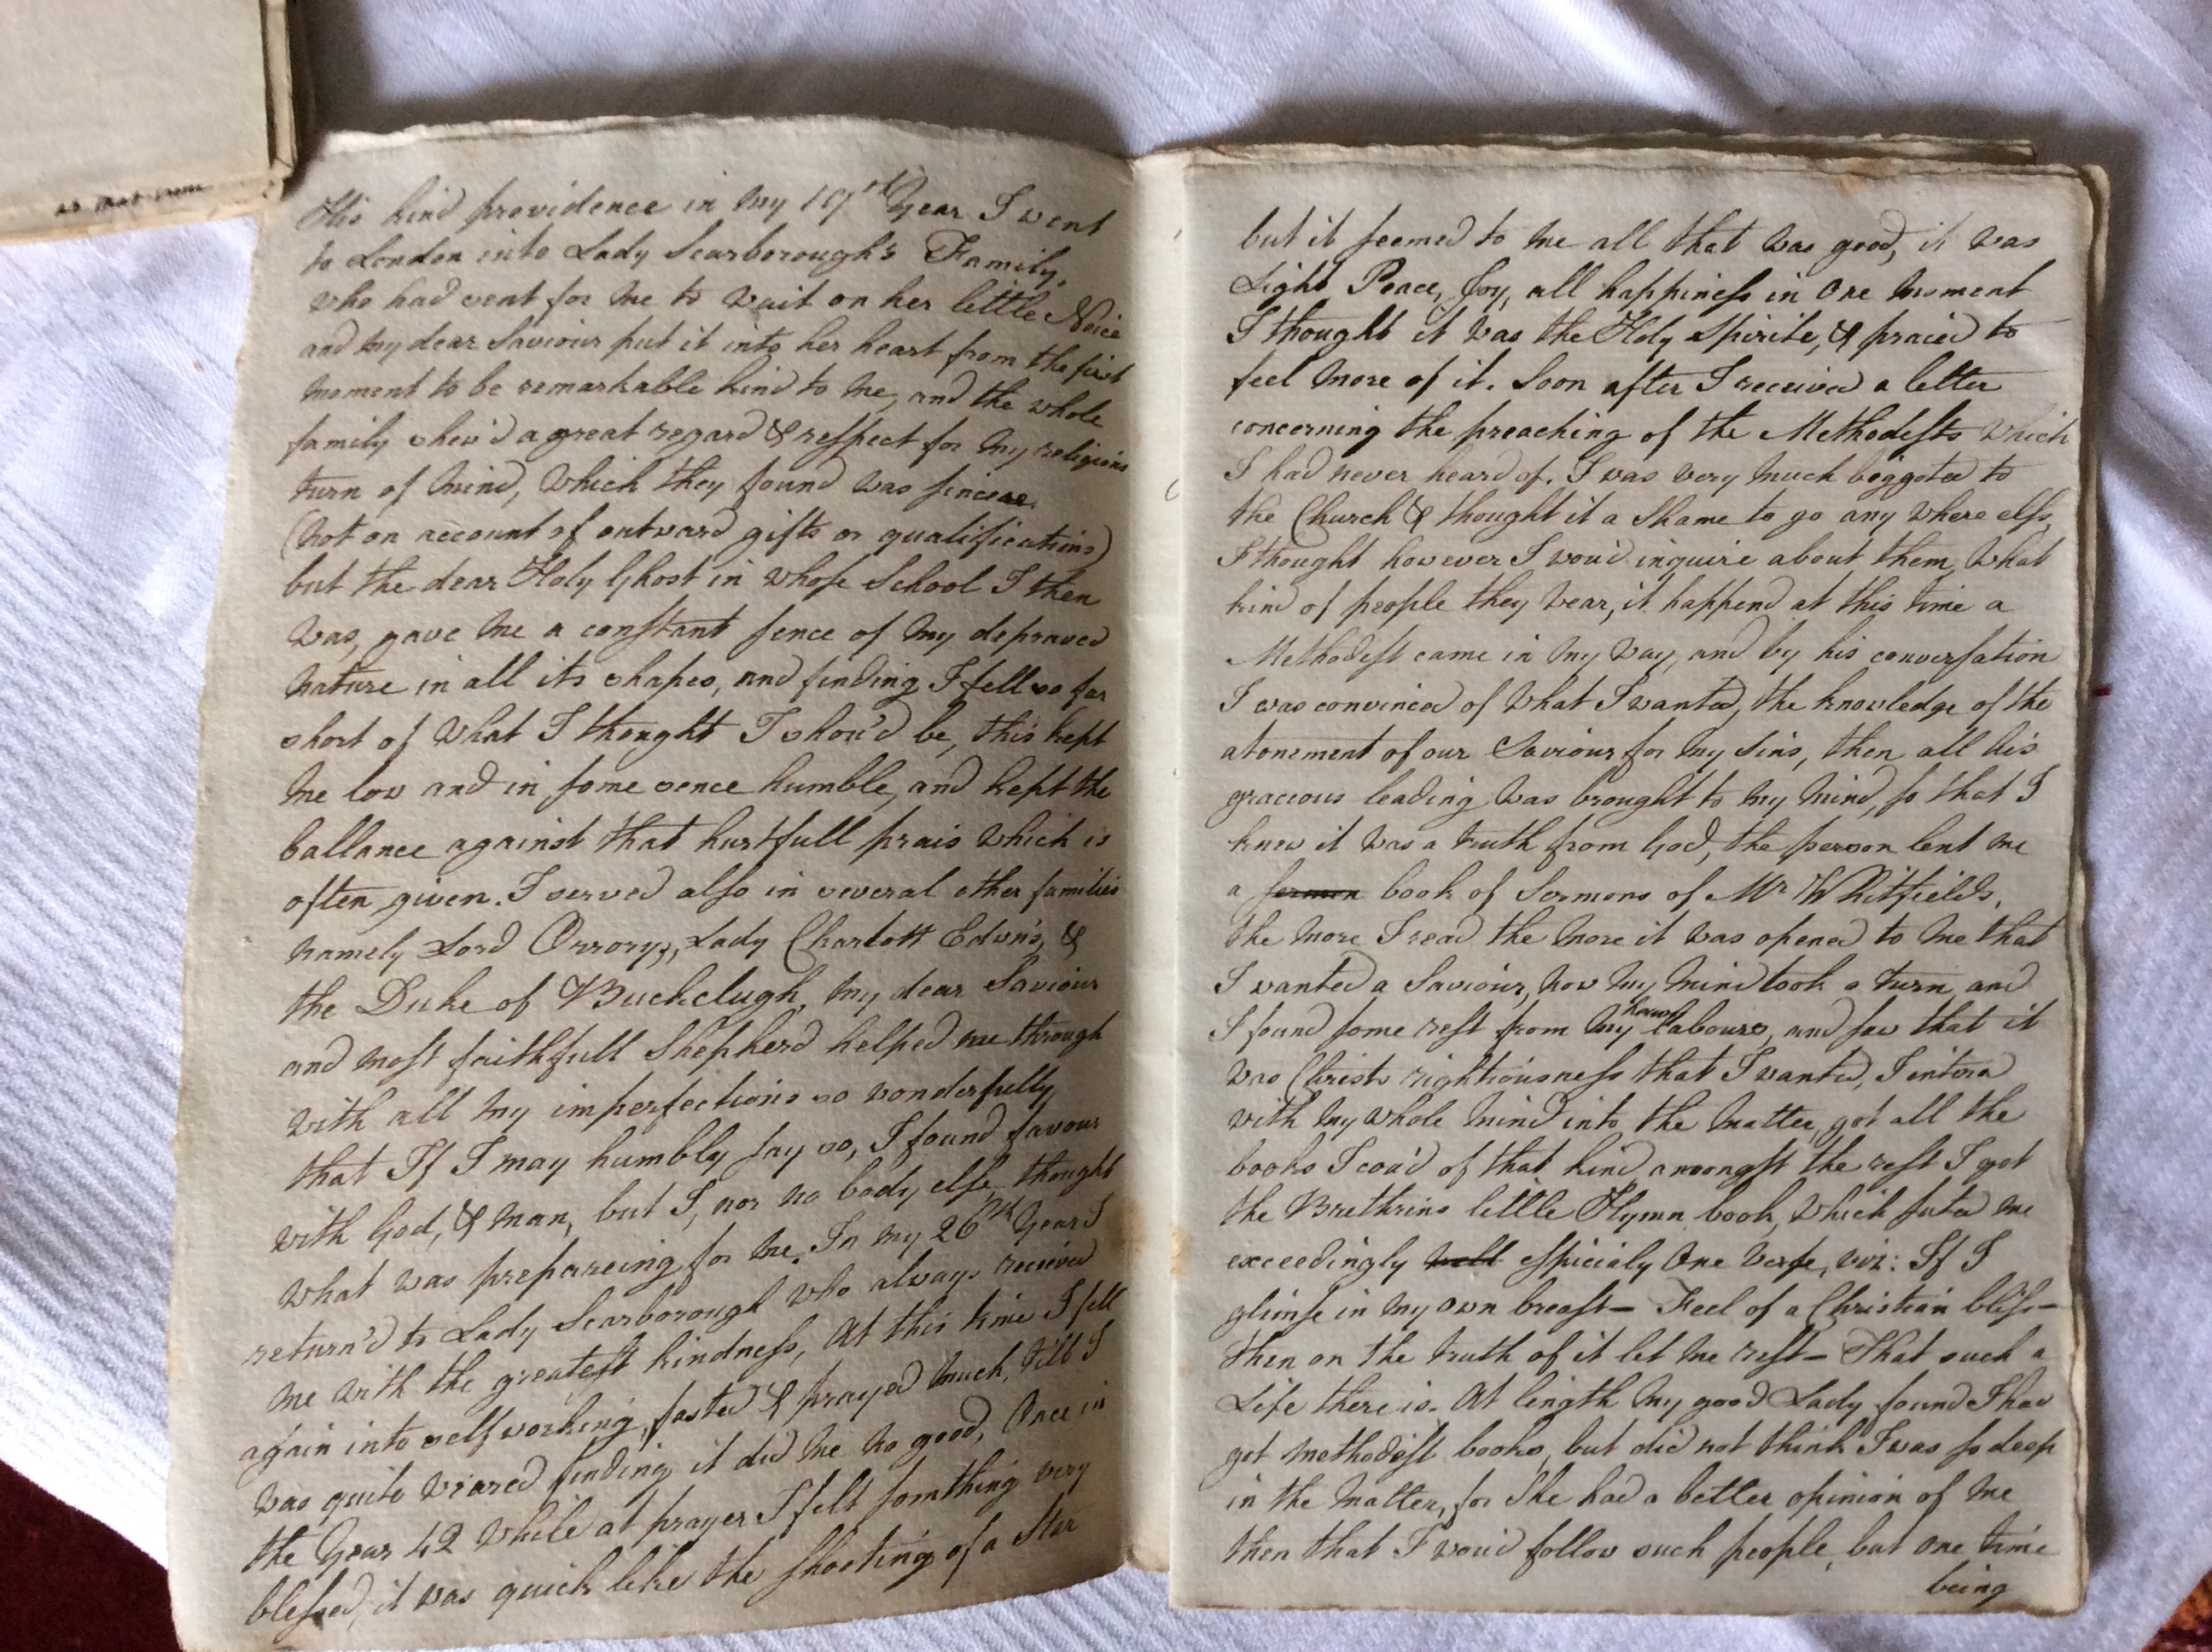 as that
His kind providence in my 19th Year I went
to London into Lady Scarborough's Family,
who had sent for me to wait on her little Neice
and my dear Saviour put it into her heart from the first
moment to be remarkable kind to me, and the whole
family shew'd a great regard & respect for my religious
turn of mind, which they found was sincere
(not on account of outward gifts or qualifications)
but the dear Holy Ghost in whose School I then
was, gave me a constant sence of my depraved
nature in all its shapes, and finding I fell so far
short of what I thought I shou'd be, this kept
me low and in some sence humble, and kept the
ballance against that hurtfull prais which is
often given. I served also in several other families
namely Lord Orrorys, Lady Charlott Edwns, &
the Duke of Buckclugh, my dear Saviour
and most faithfull Shepherd helped me through
with all my imperfections so wonderfully
that If I may humbly say so, I found favour
with God, & man, but I, nor no body else thought
what was prepareing for me. In my 26th Year I
return'd to Lady Scarborough who always received
me with the greatest kindness, At this time I fell
again into self working, fasted & prayed much, till I
was quite weared finding it did me no good, Once in
the Year 42 while at prayer I felt somthing very
blessed, it was quick like the shooting of a Star
but it seemed to me all that was good, it was
Light Peace, Joy, all happiness in one moment
I thought it was the Holy Spirite, & praied to
feel more of it. Soon after I received a letter
concerning the preaching of the Methodests which
I had never heard of. I was very much biggoted to
the Church & thought it a shame to go any where else,
I thought however I wou'd inquire about them, what
kind of people they wear, it happend at this time a
Methodest came in my way, and by his conversation
I was convinced of what I wanted, the knowledge of the
atonement of our Saviour for my sins, then all his
gracious leading was brought to my mind, so that I
knew it was a truth from God, the person lent me
a sermon book of Sermons of Mr Whitfields,
the more I read the more it was opened to me that
I wanted a Saviour, now my mind took a turn and
I found some rest from my hard labours, and saw that it
was Christs rightiousness that I wanted, I intera
with my whole mind into the matter, got all the
books I cou'd of that kind amoongst the rest I got
the Brethrins little Hymn book, which suted me
exceedingly well espicialy One Verse, viz: If I
glimse in my own breast— Feel of a Christian bliss—
Then on the truth of it let me rest— That such a
Life there is. At length my good Lady found I had
got methodest books, but did not think I was so deep
in the matter, for She had a better opinion of me
then that I wou'd follow such people, but one time
being